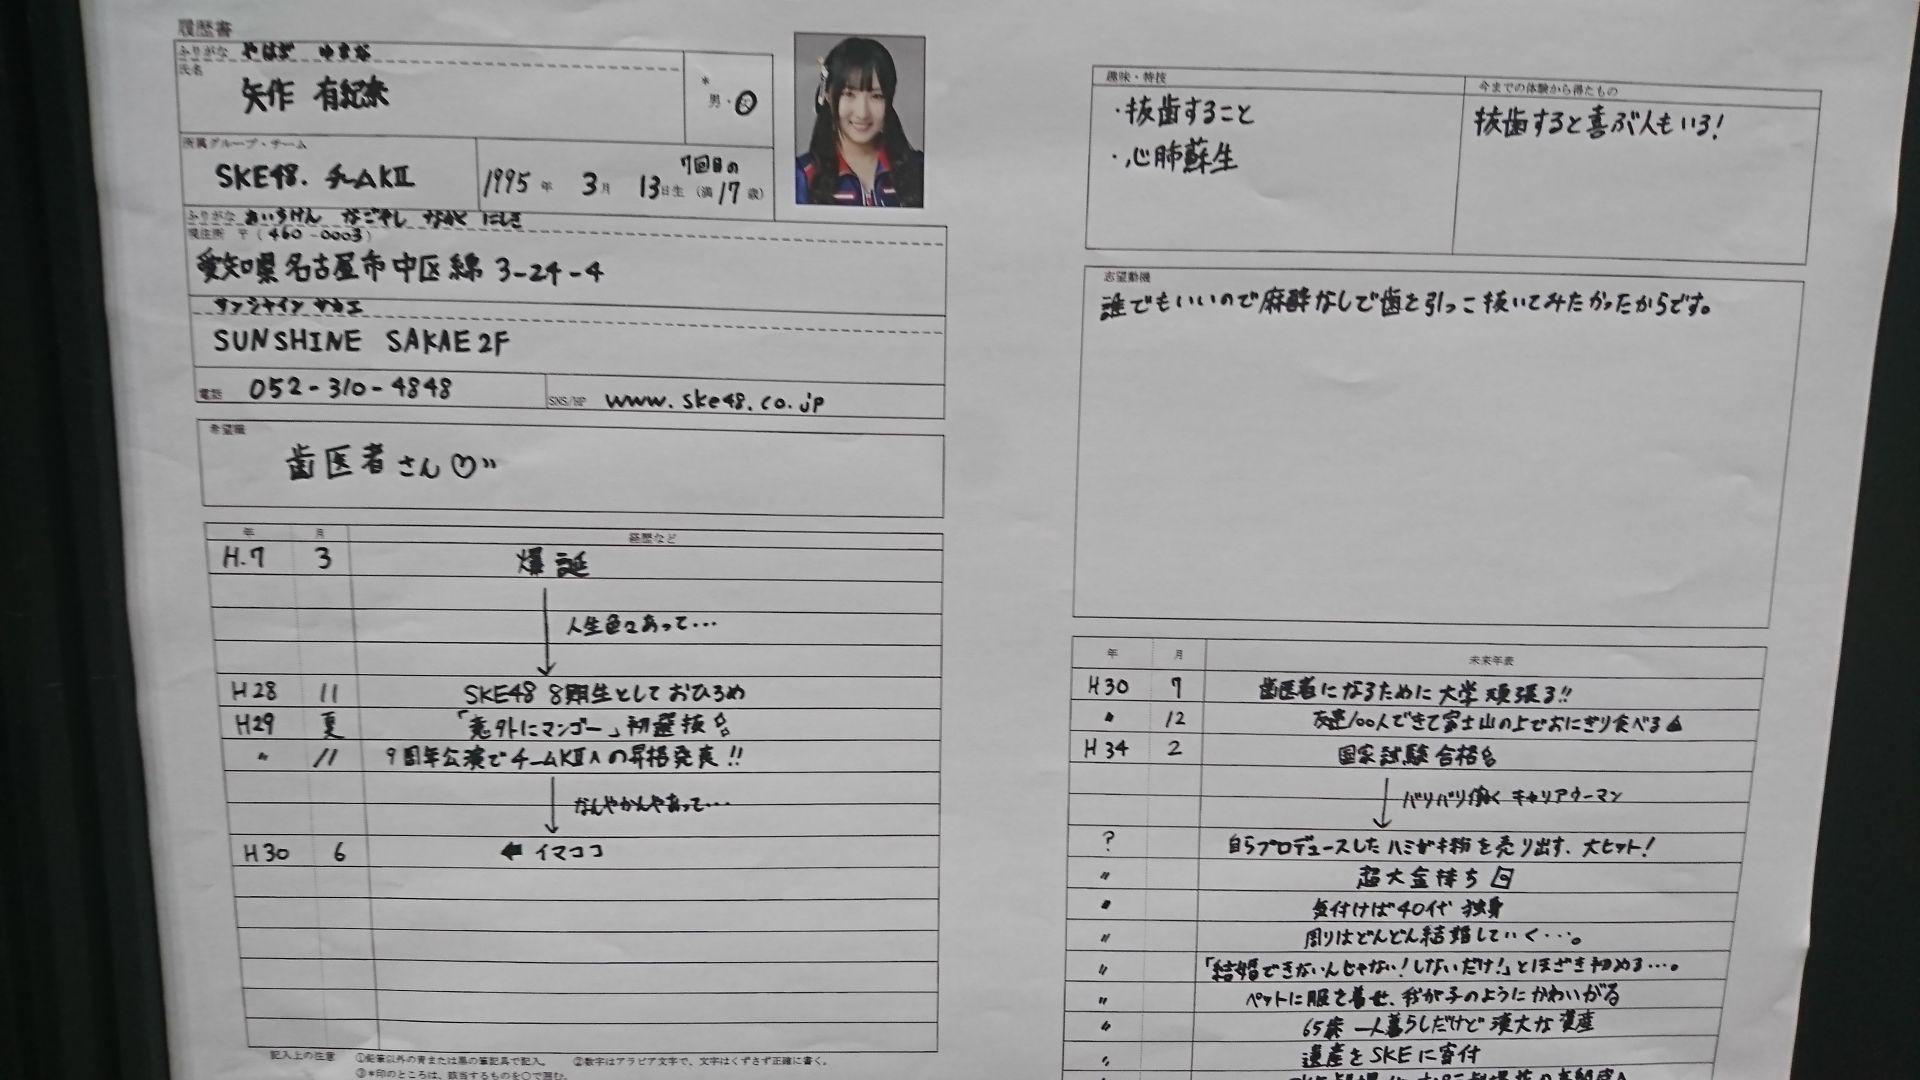 履歴書
ふりがな やはぎ ゆきな
氏名
矢作 有紀奈
*
男・女
所属グループ・チーム
SKE48. チームKⅡ
1995年 3月 13日生 (満17歳)
7回目の
ふりがな あいちけん なごやし なかく にしき
現住所 〒(460-0003)
愛知県名古屋市中区錦 3-24-4
サンシャイン サカエ
SUNSHINE SAKAE 2F
電話 052-310-4848
SNS/HP www.ske48.co.jp
希望職
歯医者さん♡"
年 月 経歴など
H.7 3 爆誕
人生色々あって…
H28 11 SKE48 8期生としておひろめ
H29 夏 「意外にマンゴー」初選抜
〃 11 9周年公演でチームKⅡへの昇格発表!!
なんやかんやあって…
H30 6 ← イマココ
記入上の注意 ①鉛筆以外の青または黒の筆記具で記入。 ②数字はアラビア文字で、文字はくずさず正確に書く。
③*印のところは、該当するものを○で囲む。
趣味・特技
・抜歯すること
・心肺蘇生
今までの体験から得たもの
抜歯すると喜ぶ人もいる!
志望動機
誰でもいいので麻酔なしで歯を引っこ抜いてみたかったからです。
年 月 未来年表
H30 7 歯医者になるために大学頑張る!!
〃 12 友達100人できて富士山の上でおにぎり食べる
H34 2 国家試験合格
バリバリ働くキャリアウーマン
? 自らプロデュースしたハミガキ粉を売り出す、大ヒット!
〃 超大金持ち
〃 気付けば40代 独身
〃 周りはどんどん結婚していく…。
〃 「結婚できないんじゃない!しないだけ!」とほざき初める…。
〃 ペットに服を着せ、我が子のようにかわいがる
〃 65歳 一人暮らしだけど 莫大な遺産
〃 遺産をSKEに寄付